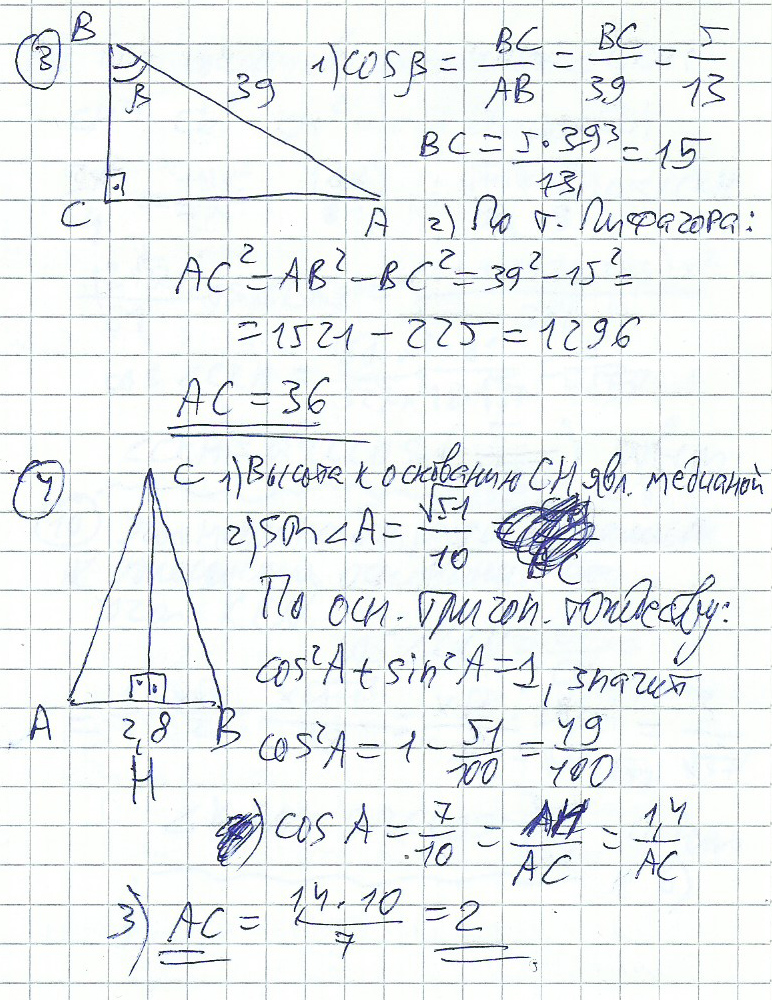 3
B
β
39
C
A
1) cosβ = BC/AB = BC/39 = 5/13
BC = 5·39³/13₁ = 15
2) По т. Пифагора:
AC² = AB² − BC² = 39² − 15² =
= 1521 − 225 = 1296
AC = 36
4
C
A
2,8
B
H
1) Высота к основанию CH явл. медианой
2) sin∠A = √51/10
По осн. тригон. тождеству:
cos²A + sin²A = 1, значит
cos²A = 1 − 51/100 = 49/100
) cos A = 7/10 = AH/AC = 1,4/AC
3) AC = 14·10/7 = 2